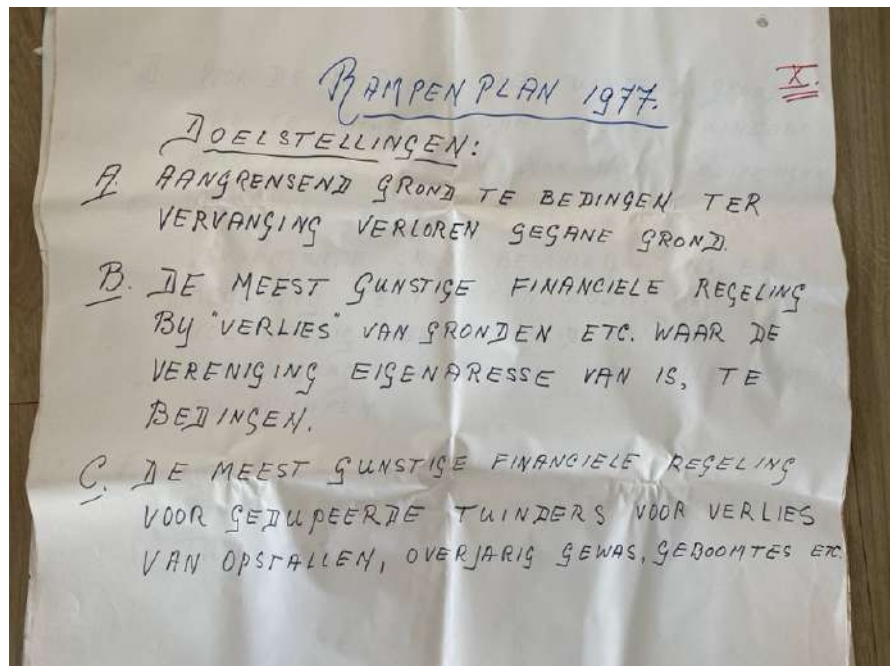 RAMPENPLAN 1977.
X.
DOELSTELLINGEN:
A. AANGRENSEND GROND TE BEDINGEN TER
VERVANGING VERLOREN GEGANE GROND.
B. DE MEEST GUNSTIGE FINANCIELE REGELING
BY "VERLIES" VAN GRONDEN ETC. WAAR DE
VERENIGING EIGENARESSE VAN IS, TE
BEDINGEN.
C. DE MEEST GUNSTIGE FINANCIELE REGELING
VOOR GEDUPEERDE TUINDERS VOOR VERLIES
VAN OPSTALLEN, OVERJARIG GEWAS, GEBOOMTES ETC.